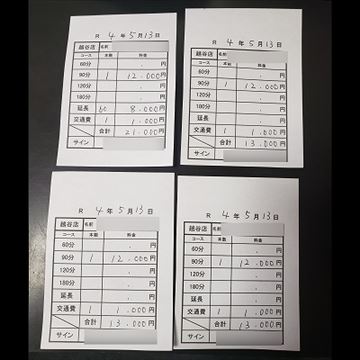 R 4年 5月13日
越谷店 名前
コース 本数 料金
60分 . 円
90分 1 12.000円
120分 . 円
180分 . 円
延長 60 8.000円
交通費 1 1.000円
合計 21.000円
サイン
R 4年 5月13日
越谷店 名前
コース 本数 料金
60分 . 円
90分 1 12.000円
120分 . 円
180分 . 円
延長 . 円
交通費 1 1.000円
合計 13.000円
サイン
R 4年 5月13日
越谷店 名前
コース 本数 料金
60分 . 円
90分 1 12.000円
120分 . 円
180分 . 円
延長 . 円
交通費 1 1.000円
合計 13.000円
サイン
R 4年 5月13日
越谷店 名前
コース 本数 料金
60分 . 円
90分 1 12.000円
120分 . 円
180分 . 円
延長 . 円
交通費 1 1.000円
合計 13.000円
サイン